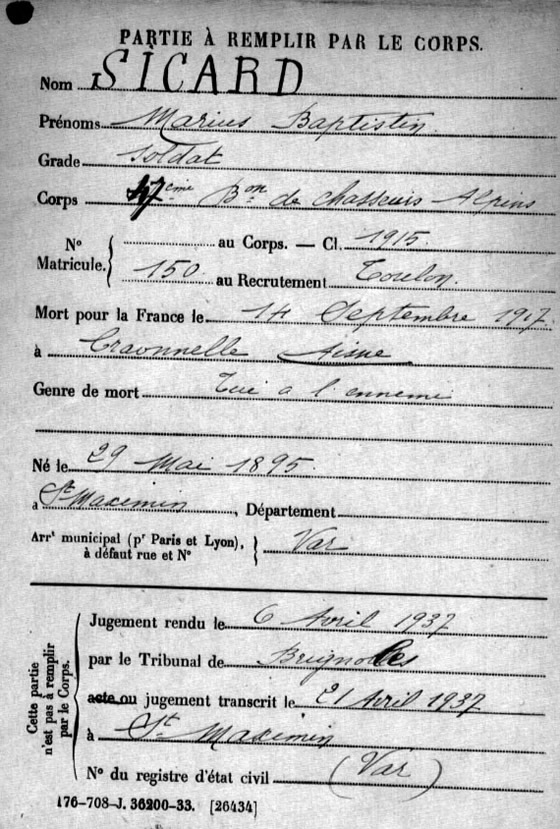 PARTIE À REMPLIR PAR LE CORPS.
Nom SICARD
Prénoms Marius Baptistin
Grade Soldat
Corps 47eme Bon de chasseurs Alpins
No Matricule. { au Corps. — Cl. 1915.
150 au Recrutement Toulon.
Mort pour la France le 14 Septembre 1917.
à Craonnelle Aisne
Genre de mort Tué a l'ennemi
Né le 29 Mai 1895.
à St Maximin, Département
Arrt municipal (pr Paris et Lyon), à défaut rue et No } Var
Cette partie n'est pas à remplir par le Corps.
Jugement rendu le 6 Avril 1937
par le Tribunal de Brignolles
acte ou jugement transcrit le 21 Avril 1937
à St Maximin
No du registre d'état civil (Var)
176-708-J. 36200-33. [26434]